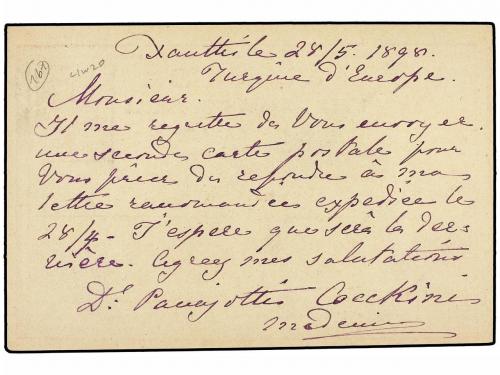 Xanthi le 28/5. 1898.
Turquie d'Europe.
167
Monsieur.
Il me regrette de Vous envoyer
une seconde carte postale pour
Vous prier de repondre à ma
lettre recomandées expediée le
28/4. J'espere que serà la der-
nière. Agreez mes salutations
Dr. Panajottis Cockinis
medecin